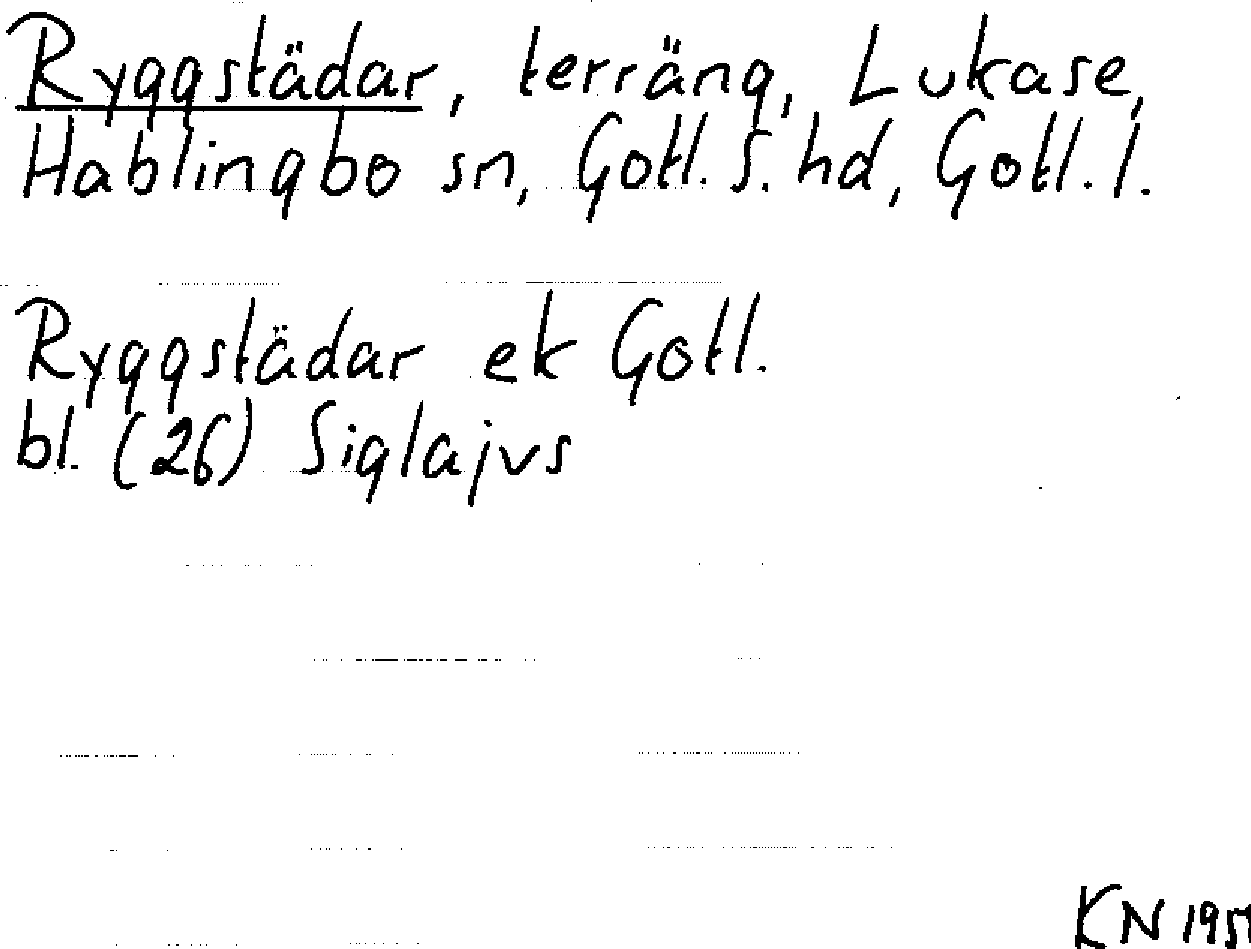 Ryggstädar, terräng, Lukase,
Hablingbo sn, Gotl. S. hd, Gotl. l.
Ryggstädar ek Gotl.
bl. (26) Siglajvs
KN 195